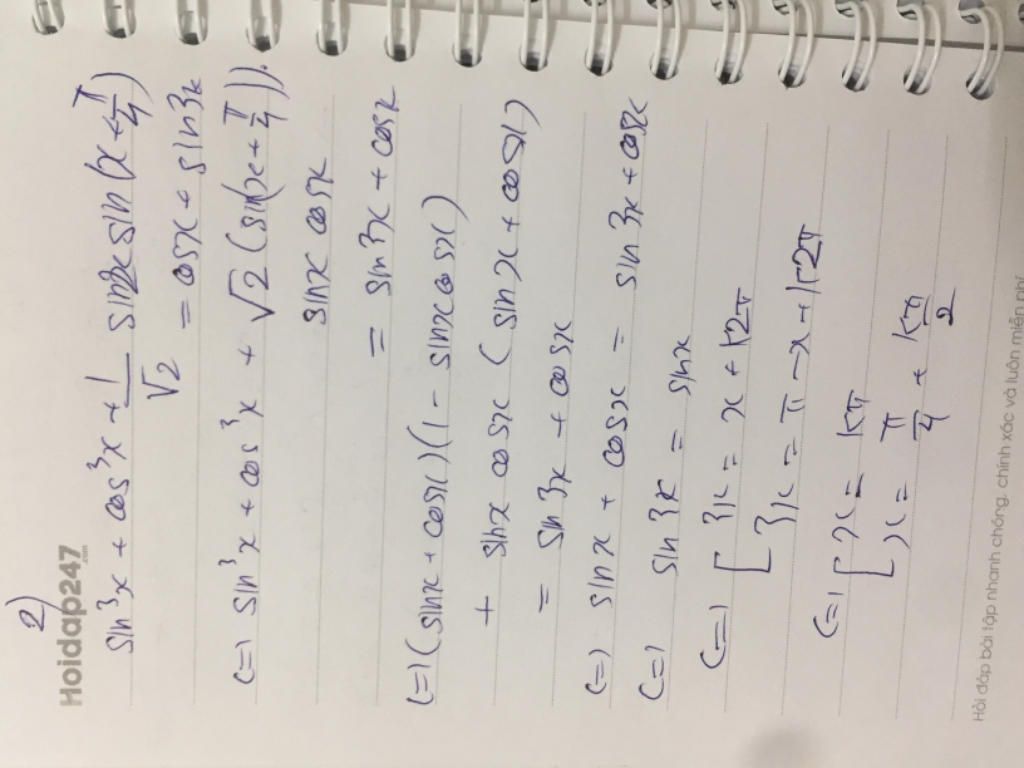 2)
Hoidap247.com
sin³x + cos³x + 1/√2 sin2x sin(x + π/4)
= cosx + sin3x
<=> sin³x + cos³x + √2 (sin(x + π/4)).
sinx cosx
= sin3x + cosx
<=> (sinx + cosx)(1 - sinx cosx)
+ sinx cosx (sinx + cosx)
= sin3x + cosx
<=> sinx + cosx = sin3x + cosx
<=> sin3x = sinx
<=> [ 3x = x + k2π
[ 3x = π - x + k2π
<=> [ x = kπ
[ x = π/4 + kπ/2
Hỏi đáp bài tập nhanh chóng, chính xác và luôn miễn phí